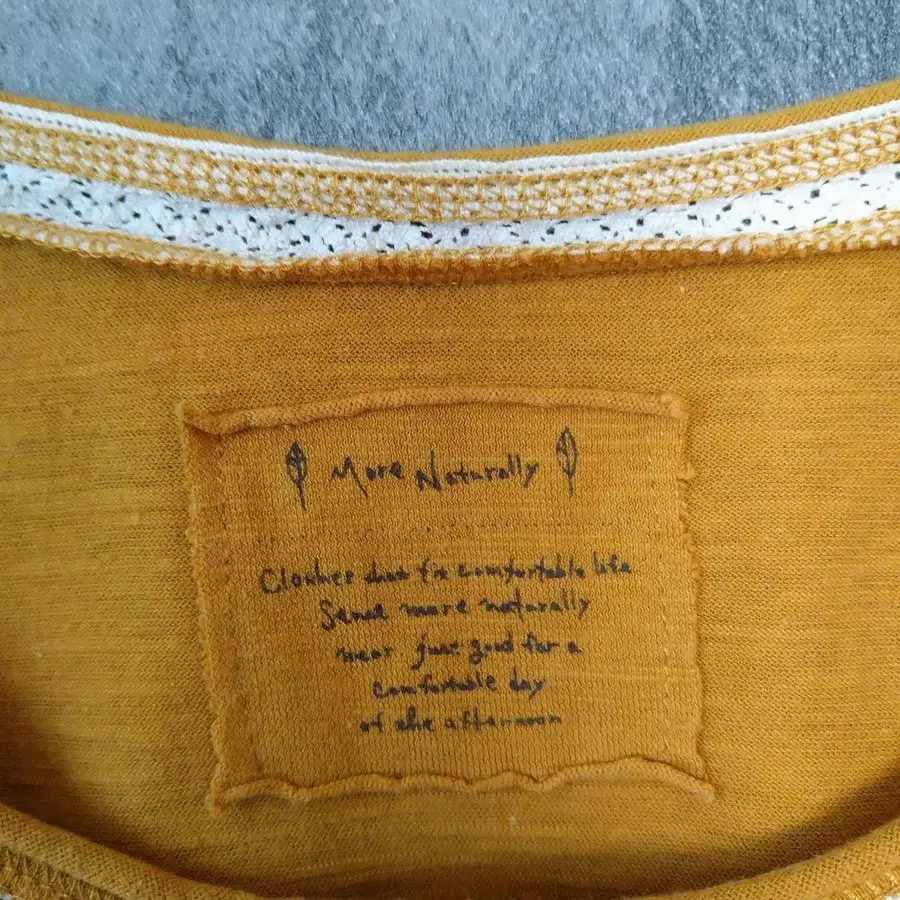 More Naturally
Clothes that fit comfortable life
Sense more naturally
wear just good for a
comfortable day
of the afternoon